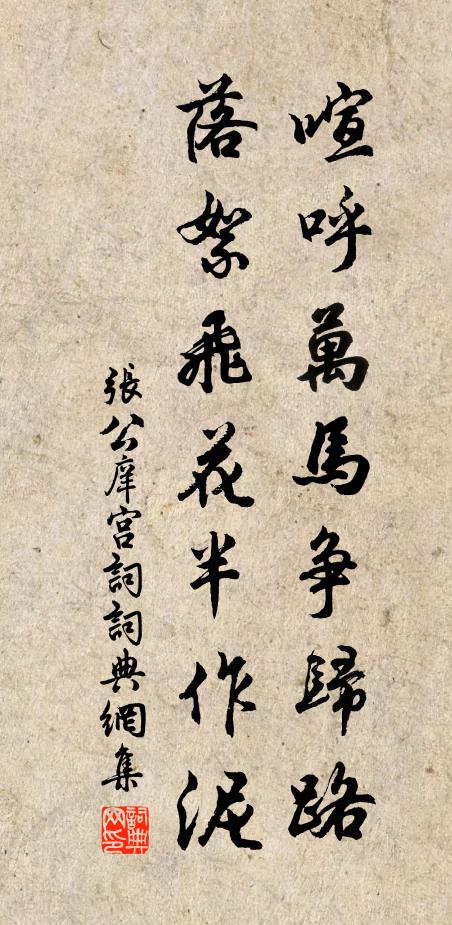 喧呼萬馬争歸路
落絮飛花半作泥
張公庠宫詞詞典網集
詞典網印